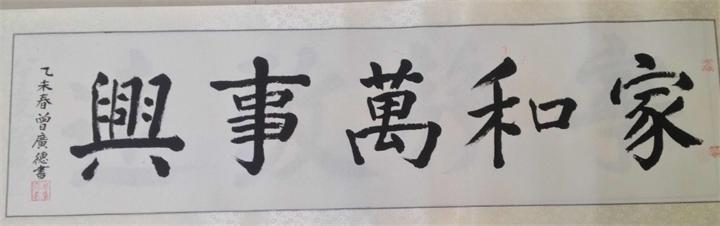 家和萬事興
乙未春曾廣德書